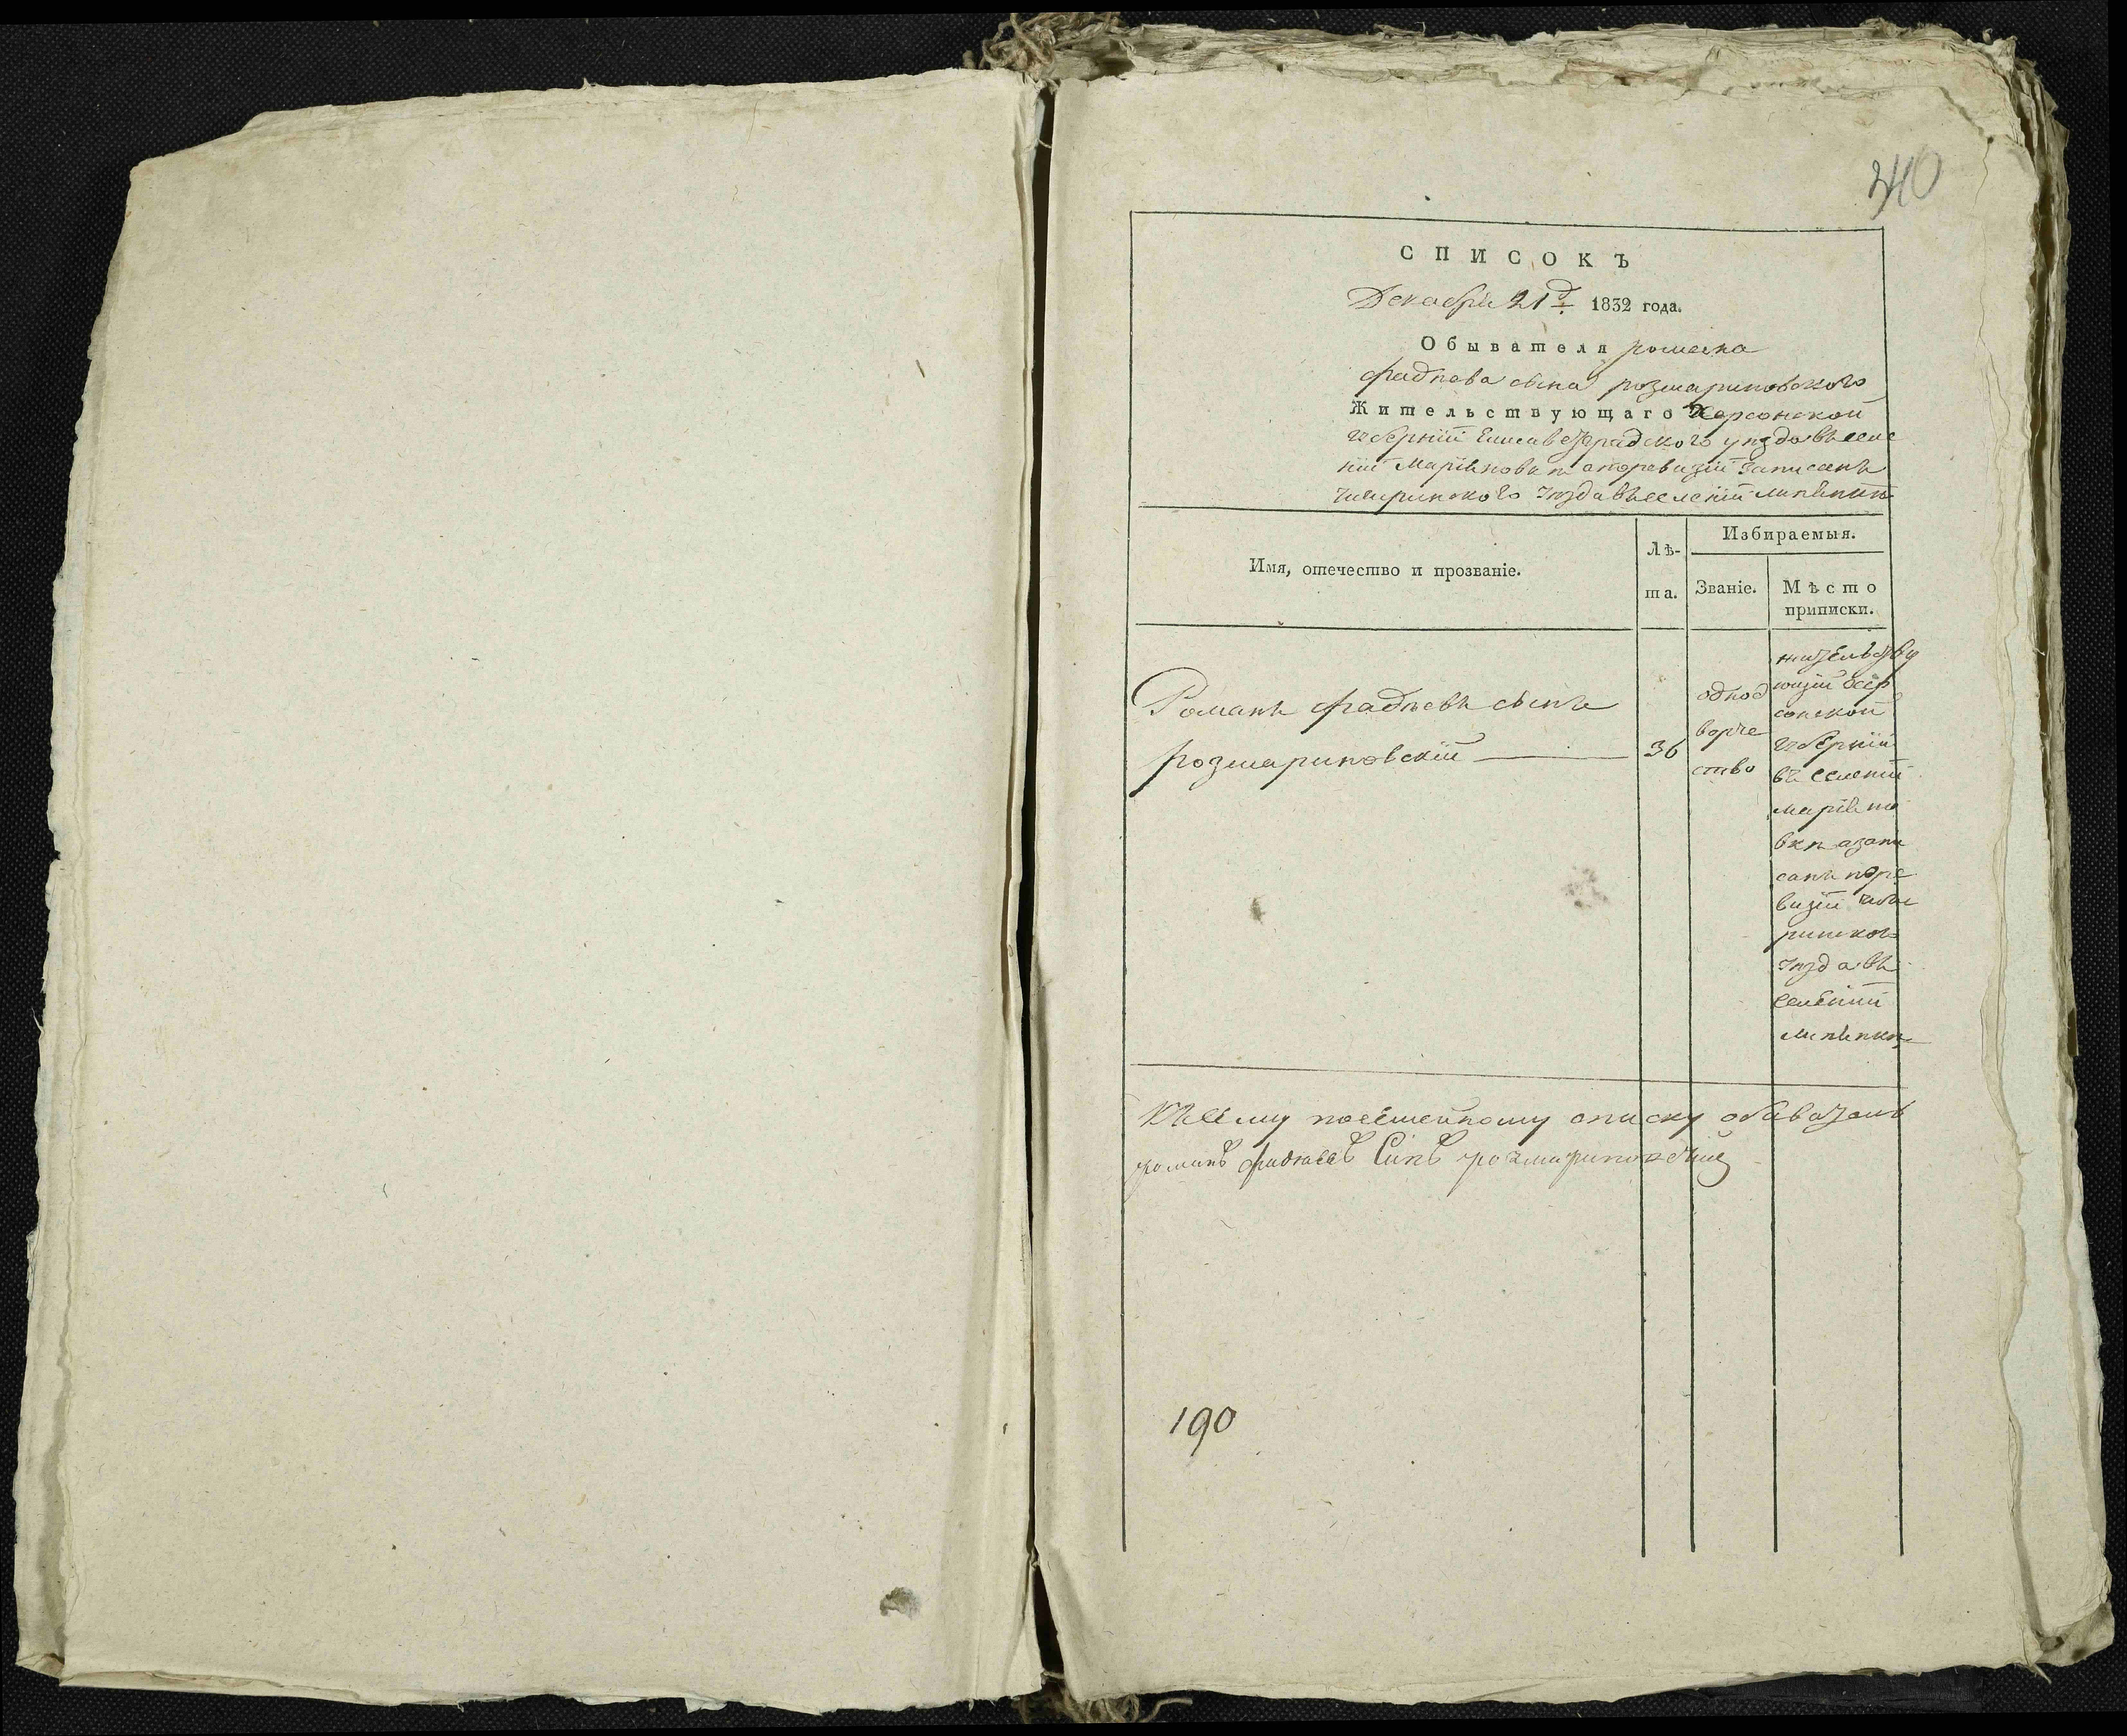 340
СПИСОКЪ
Декабря 21 д. 1832 года.
Обывателя романа
фадѣева сына розмариновского
Жительствующаго Херсонской
губерніи Елисаветградского уѣзда въ селе
ніи Маріяновкѣ апоревизіи записанъ
чигиринского уѣзда въ селеніи липянкѣ
Имя, отечество и прозваніе.
Лѣ-
та.
Избираемыя.
Званіе.
Мѣсто
приписки.
Романъ фадѣевъ сынъ
розмариновскій
36
однод
ворче
ство
жительству
ющій хер
сонской
губерніи
въ селеніи
маріяно
вкѣ азапи
санъ поре
визіи чиги
ринского
уѣзда въ
селеніи
липянкѣ
Къ сему посемейному списку
романъ фадѣевъ Синъ розмариновскій
190